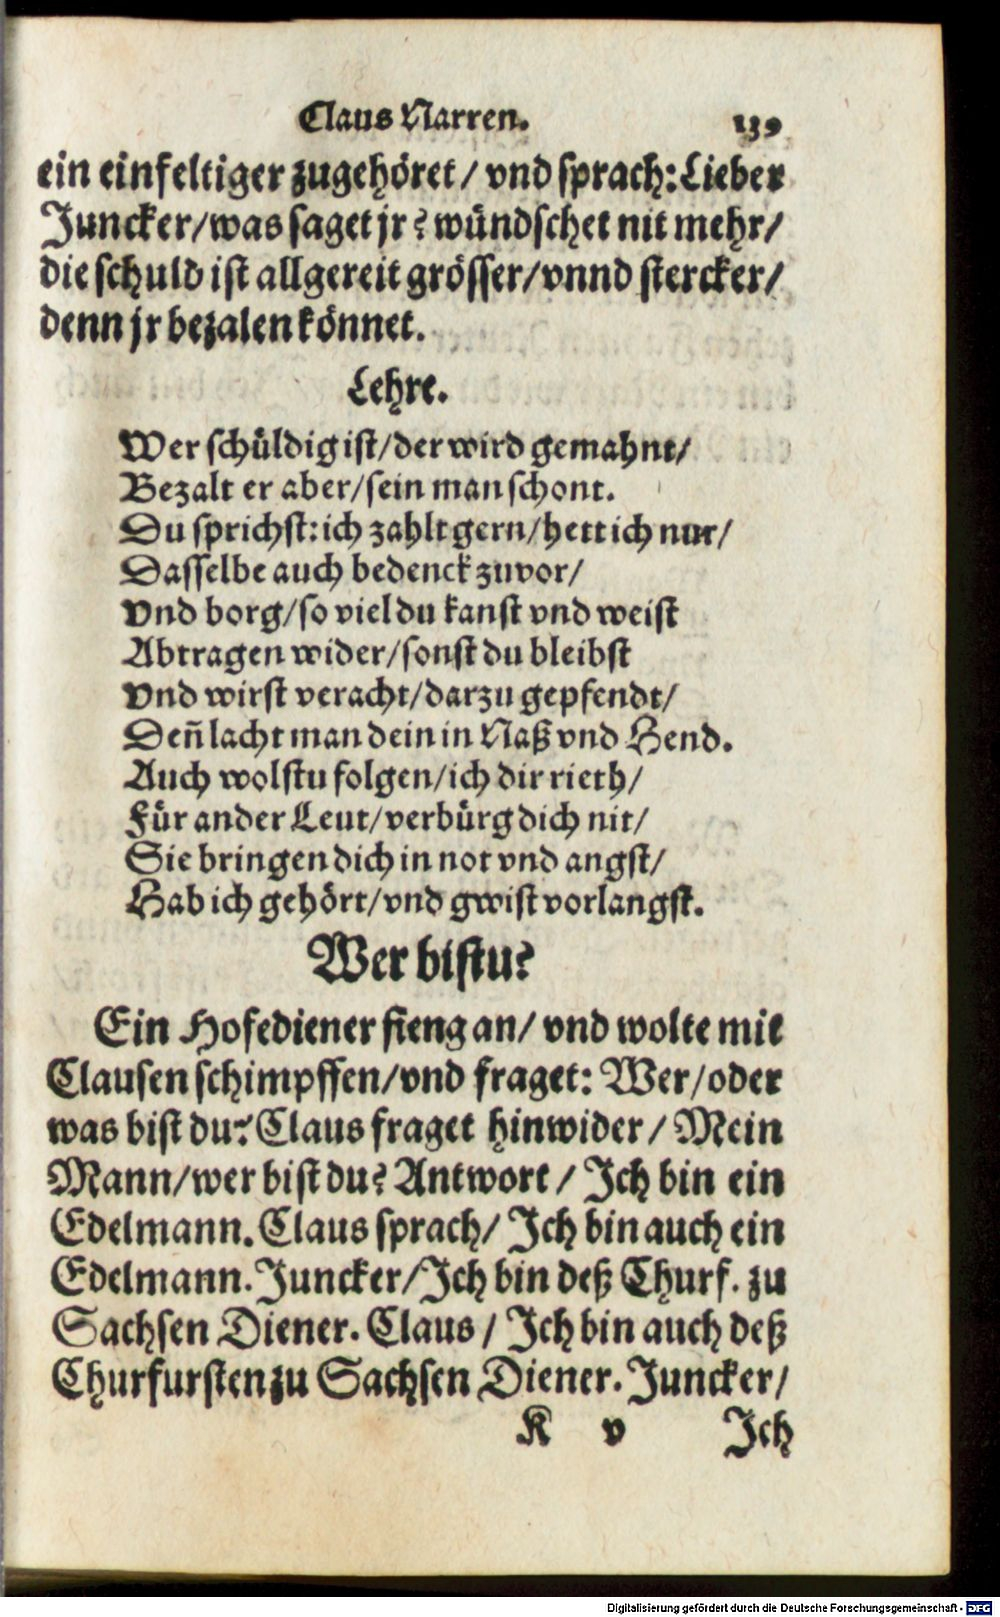 Claus Narren. 139
ein einfeltiger zugehöret / vnd sprach: Lieber
Juncker/was saget jr? wündschet nit mehr/
die schuld ist allgereit grösser/vnnd stercker/
denn jr bezalen könnet.
Lehre.
Wer schüldig ist/der wird gemahnt/
Bezalt er aber/sein man schont.
Du sprichst: ich zahlt gern/hett ich nur/
Dasselbe auch bedenck zuvor/
Vnd borg/so viel du kanst vnd weist
Abtragen wider/sonst du bleibst
Vnd wirst veracht/darzu gepfendt/
Deñ lacht man dein in Naß vnd Hend.
Auch wolstu folgen/ich dir rieth/
Für ander Leut/verbürg dich nit/
Sie bringen dich in not vnd angst/
Hab ich gehört/vnd gwist vorlangst.
Wer bistu?
Ein Hofediener fieng an/ vnd wolte mit
Clausen schimpffen/vnd fraget: Wer/oder
was bist du? Claus fraget hinwider / Mein
Mann/wer bist du? Antwort / Ich bin ein
Edelmann. Claus sprach/ Ich bin auch ein
Edelmann. Juncker/Ich bin deß Churf. zu
Sachsen Diener. Claus / Ich bin auch deß
Churfursten zu Sachsen Diener. Juncker/
K v Ich
Digitalisierung gefördert durch die Deutsche Forschungsgemeinschaft - DFG